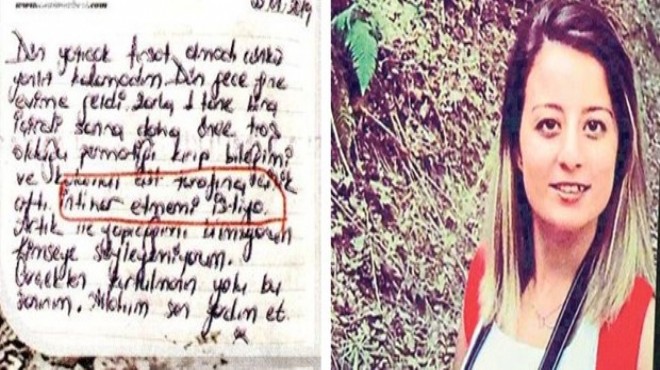 Dün yazacak fırsat olmadı çünkü
yalnız kalamadım. Dün gece yine
evime geldi. Zorla 1 tane bira
içirdi sonra daha önce traş
olduğu permatiği kırıp bileğimi
ve üst tarafına
attı. intihar etmemi istiyo.
Artık ne yapacağımı bilmiyorum
kimseye söyleyemiyorum.
kurtulmanın yolu bu
sanırım. Allahım sen yardım et.